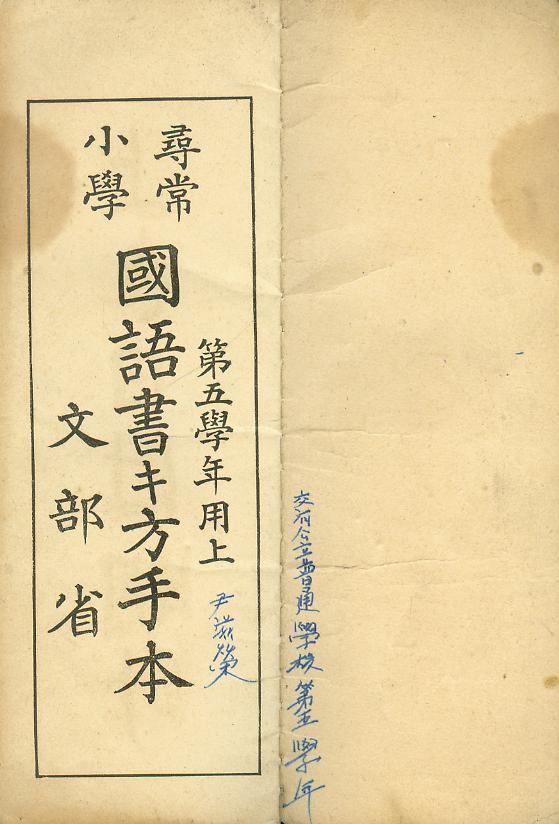 尋常
小學
國語書キ方手本
第五學年用上
文部省
公立普通學校第五學年